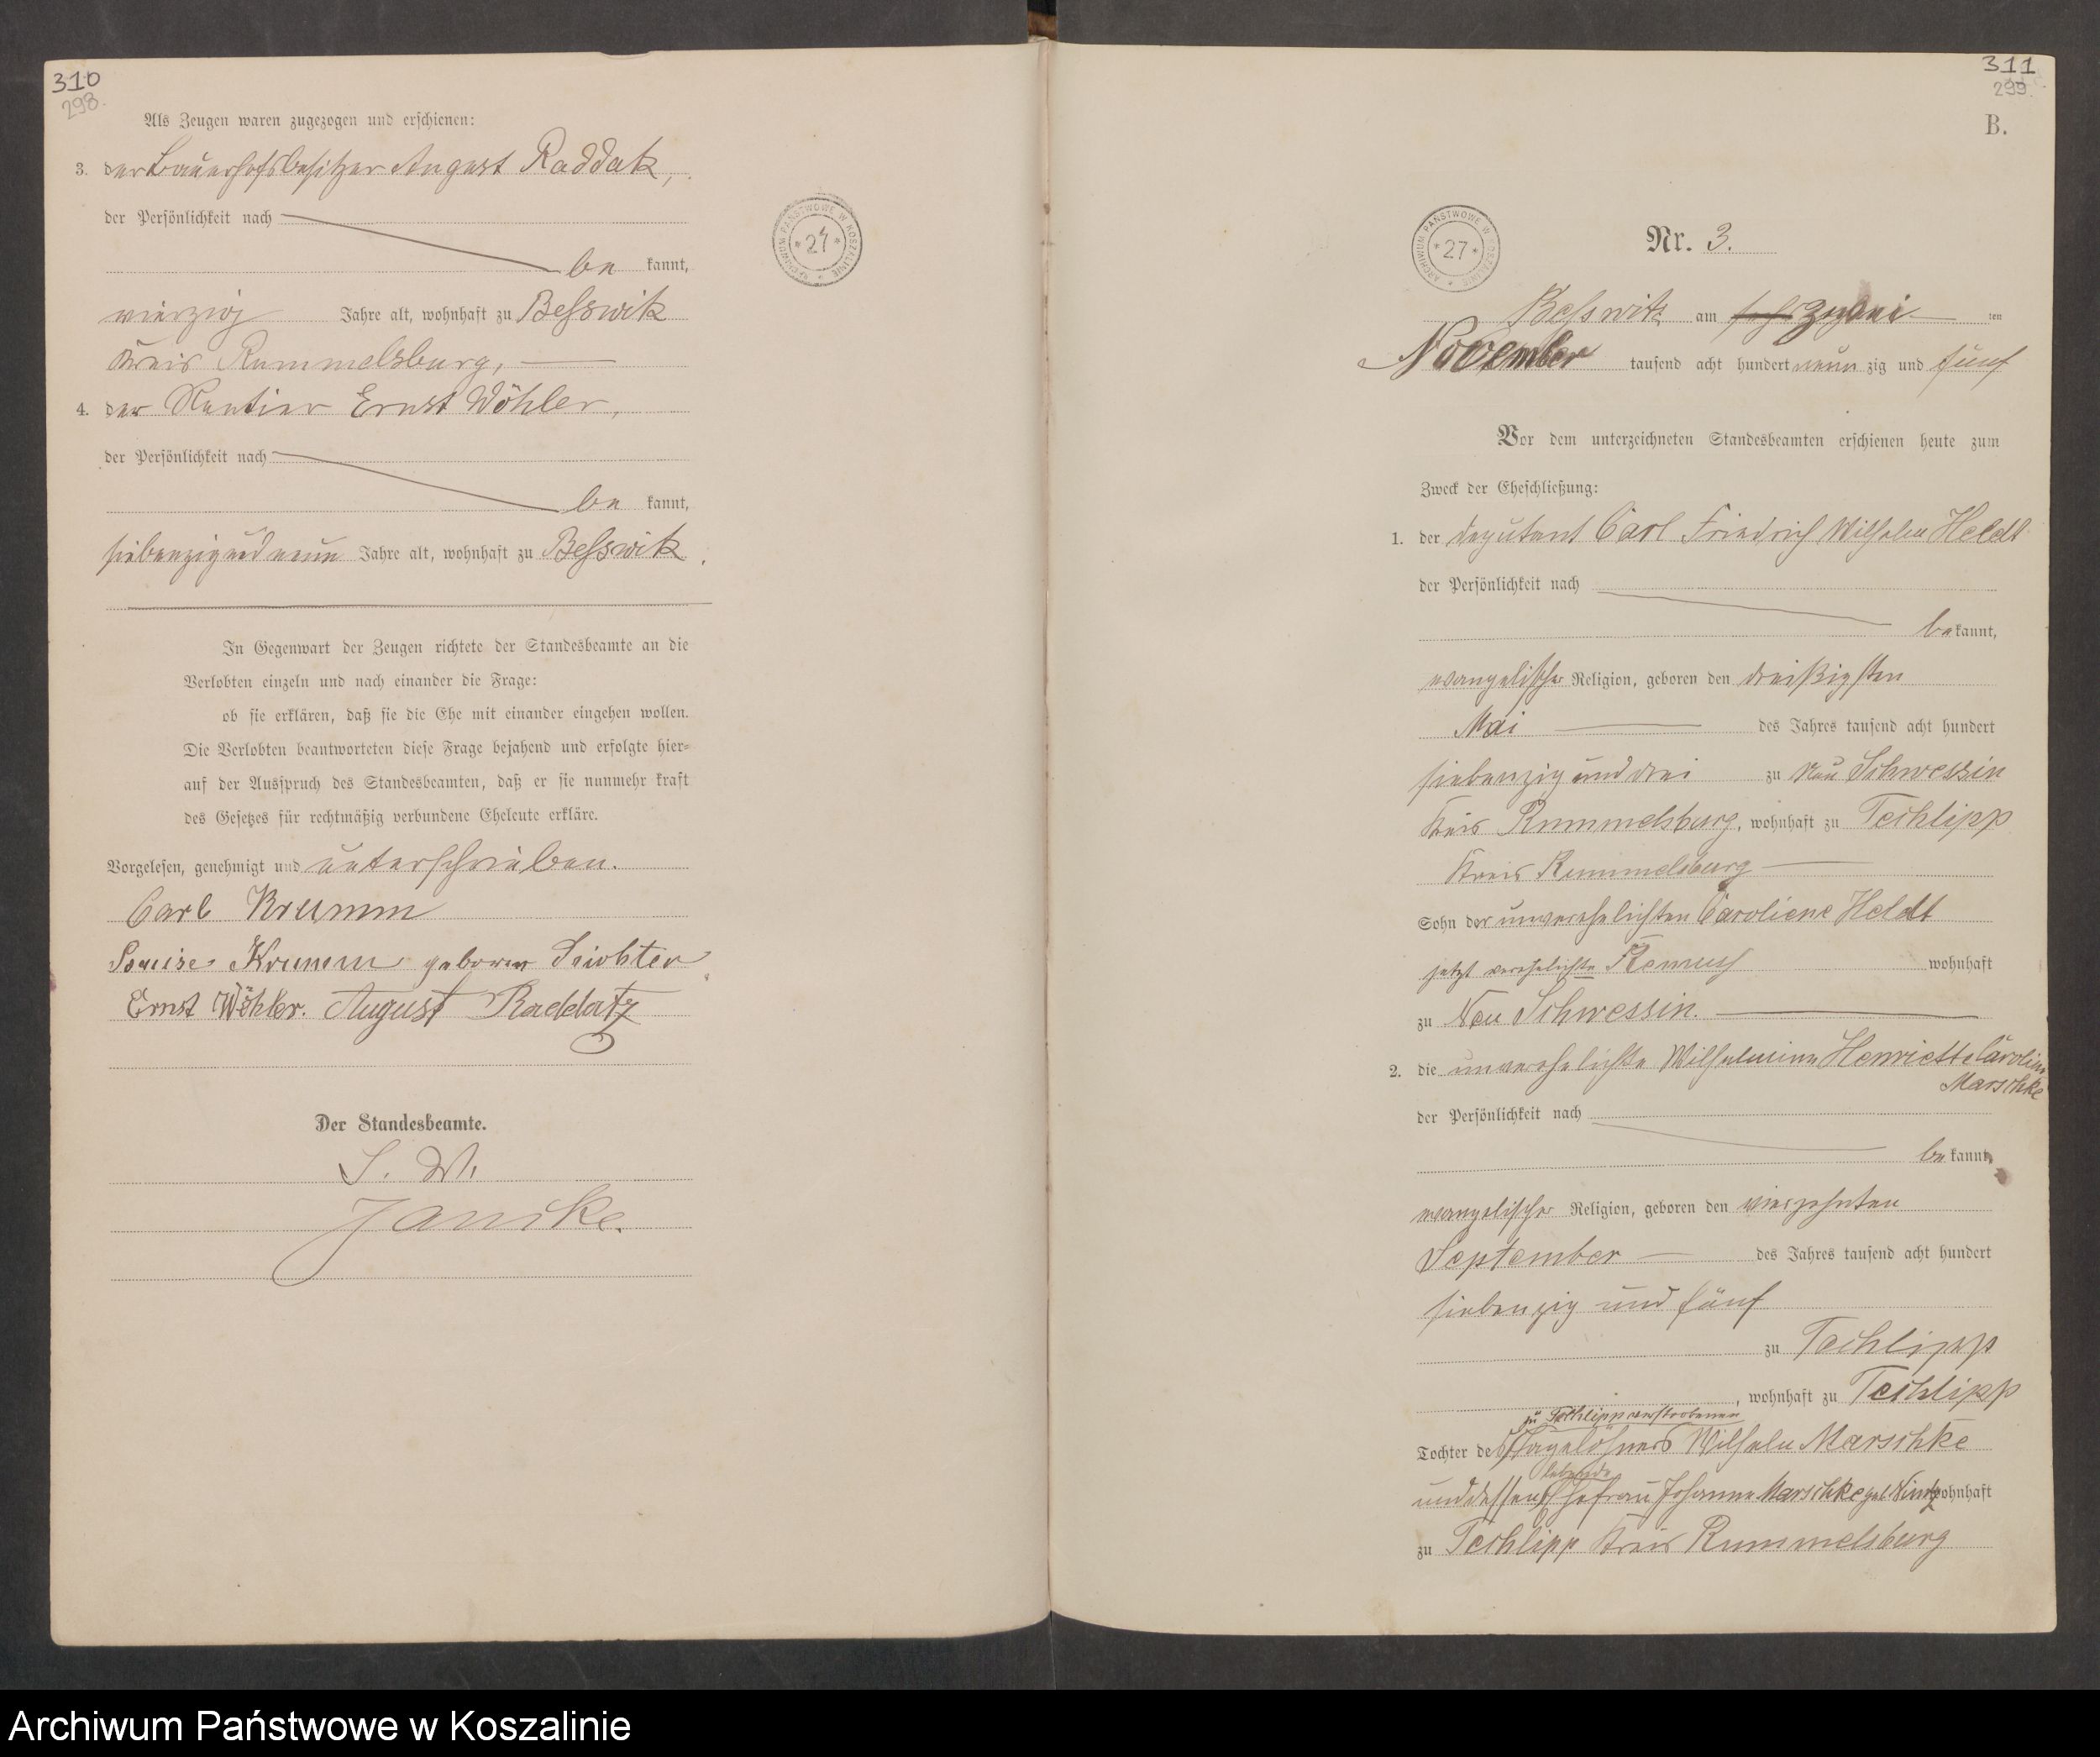 310
298.
Als Zeugen waren zugezogen und erschienen:
3. der Bauerhofsbesitzer August Raddatz,
der Persönlichkeit nach
be kannt,
vierzig Jahre alt, wohnhaft zu Besswitz
Kreis Rummelsburg,
4. der Rentier Ernst Wöhler,
der Persönlichkeit nach
be kannt,
siebenzig und neun Jahre alt, wohnhaft zu Besswitz.
In Gegenwart der Zeugen richtete der Standesbeamte an die
Verlobten einzeln und nach einander die Frage:
ob sie erklären, daß sie die Ehe mit einander eingehen wollen.
Die Verlobten beantworteten diese Frage bejahend und erfolgte hier-
auf der Ausspruch des Standesbeamten, daß er sie nunmehr kraft
des Gesetzes für rechtmäßig verbundene Eheleute erkläre.
Vorgelesen, genehmigt und unterschrieben.
Carl Krumm
Louise Krumm geboren
Ernst Wöhler. August Raddatz
Der Standesbeamte.
Janicke.
ARCHIWUM PAŃSTWOWE W KOSZALINIE
*27*
311
299.
B.
ARCHIWUM PAŃSTWOWE W KOSZALINIE
*27*
Nr. 3.
Besswitz am zwei ten
November tausend acht hundert neun zig und fünf
Vor dem unterzeichneten Standesbeamten erschienen heute zum
Zweck der Eheschließung:
1. der Deputant Carl Friedrich Wilhelm Heldt
der Persönlichkeit nach
be kannt,
evangelischer Religion, geboren den dreißigsten
Mai des Jahres tausend acht hundert
siebenzig und drei zu Neu Schwessin
Kreis Rummelsburg, wohnhaft zu Techlipp
Kreis Rummelsburg
Sohn der unverehelichten Caroliene Heldt
jetzt verehelichte Remus wohnhaft
zu Neu Schwessin.
2. die unverehelichte Wilhelmine Henriette Caroline
Marschke
der Persönlichkeit nach
be kannt,
evangelischer Religion, geboren den vierzehnten
September des Jahres tausend acht hundert
siebenzig und fünf
zu Techlipp
, wohnhaft zu Techlipp
zu Techlipp verstorbenen
Tochter des Tagelöhners Wilhelm Marschke
lebende
und dessen Ehefrau Johanna Marschke geb. wohnhaft
zu Techlipp Kreis Rummelsburg
Archiwum Państwowe w Koszalinie